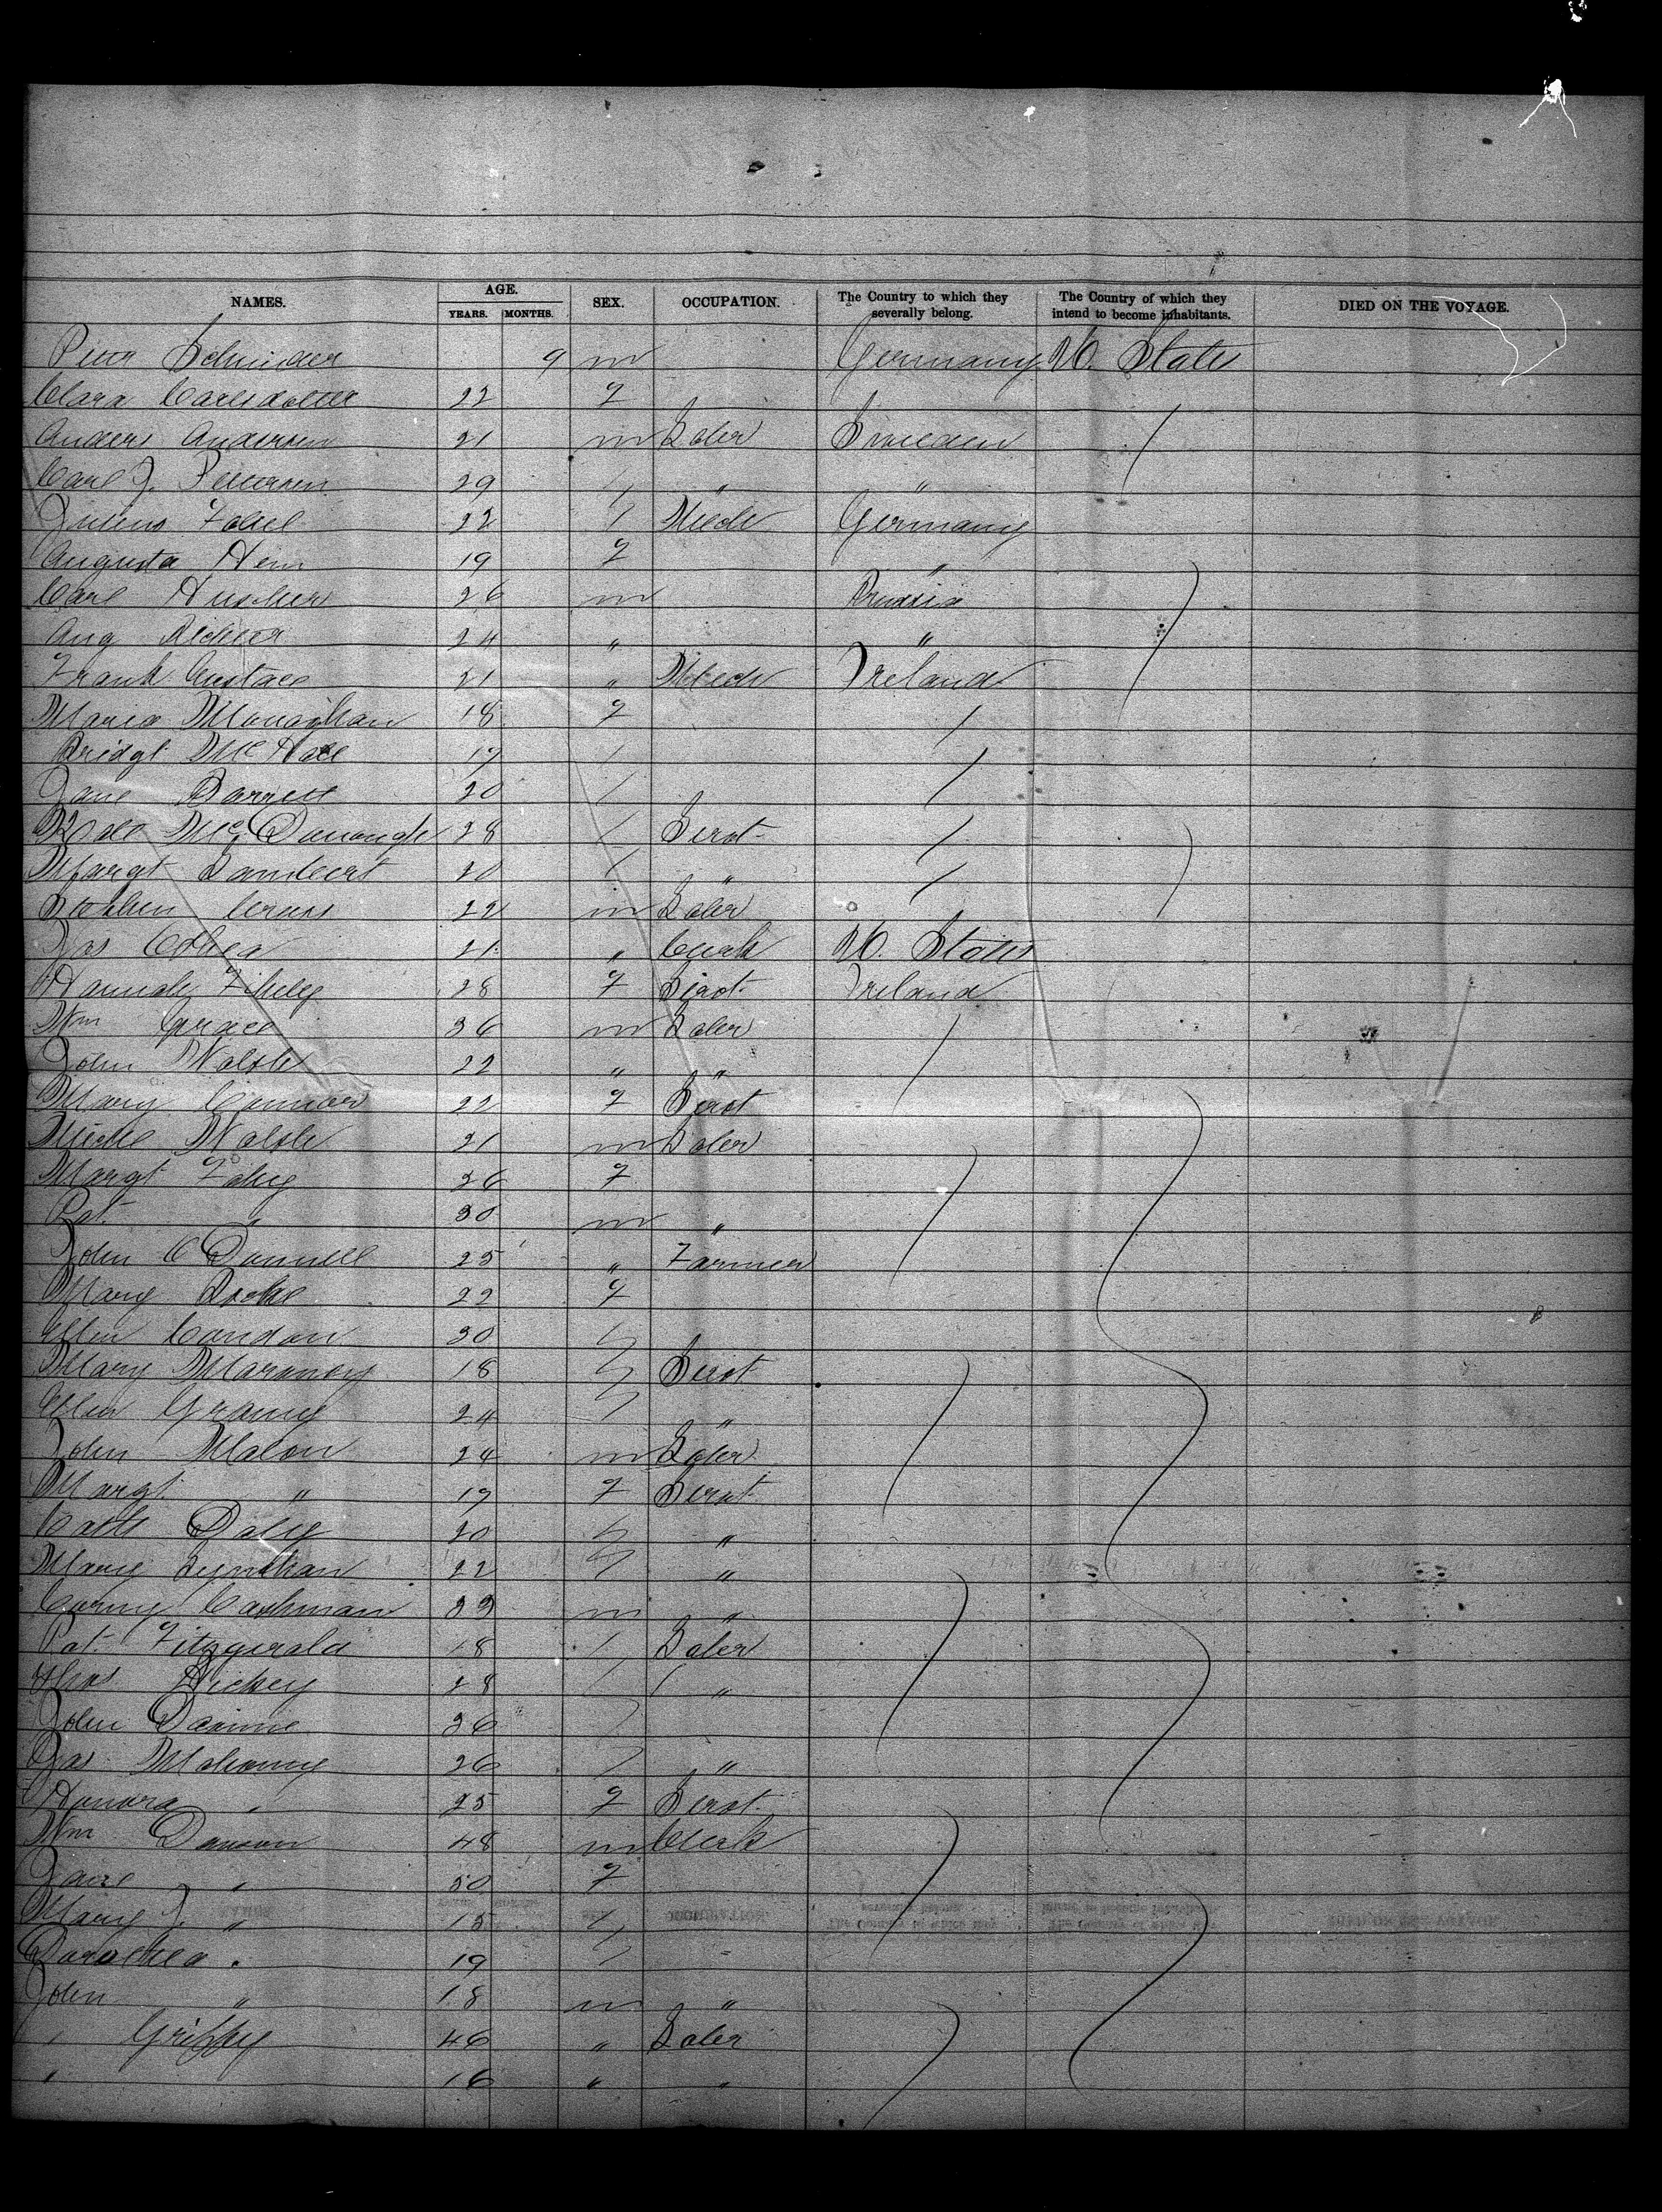 NAMES. AGE. SEX. OCCUPATION. The Country to which they severally belong. The Country of which they intend to become inhabitants. DIED ON THE VOYAGE.
YEARS. MONTHS.
Peter 9 m Germany U. States
Clara Carlsdotter 22 f
Anders Andersen 21 m Labr Sweden /
Carl J. Petersen 29 / " "
22 / Mech Germany
Augusta Hein 19 f "
Carl 26 m Prussia
Aug 24 " "
Frank Eustace 21 " Mech Ireland
Maria Monaghan 18 f /
Bridgt McHale 17 / /
Jane Barrett 20 /
McDonough 28 / Servt /
Margt Lambert 20 / " /
Stephen 22 m Labr
Jas 21 " Clerk U. States
Hannah 28 f Servt Ireland
Wm Grace 36 m Labr
John Walsh 22 " "
Mary Connor 22 f Servt
Michl Walsh 21 m Labr
Margt Fahy 26 f
Pat " 30 m "
John O'Donnell 25 " Farmer
Mary 22 f
Ellen Condon 30 "
Mary Maroney 18 " Servt
Ellen 24 " "
John Malon 24 m Labr
Margt " 17 f Servt
Cath Daly 20 " "
Mary 22 " "
Corny Cashman 33 m "
Pat Fitzgerald 18 / Labr
Thos Hickey 28 / "
John 36 /
Jas Mahoney 26 / "
Honora " 25 f Servt
Wm Dawson 48 m Clerk
Jane " 50 f
Mary J. " 15 "
Dorothea " 19 "
John " 18 m "
" Griffy 46 " Labr
" 16 " "